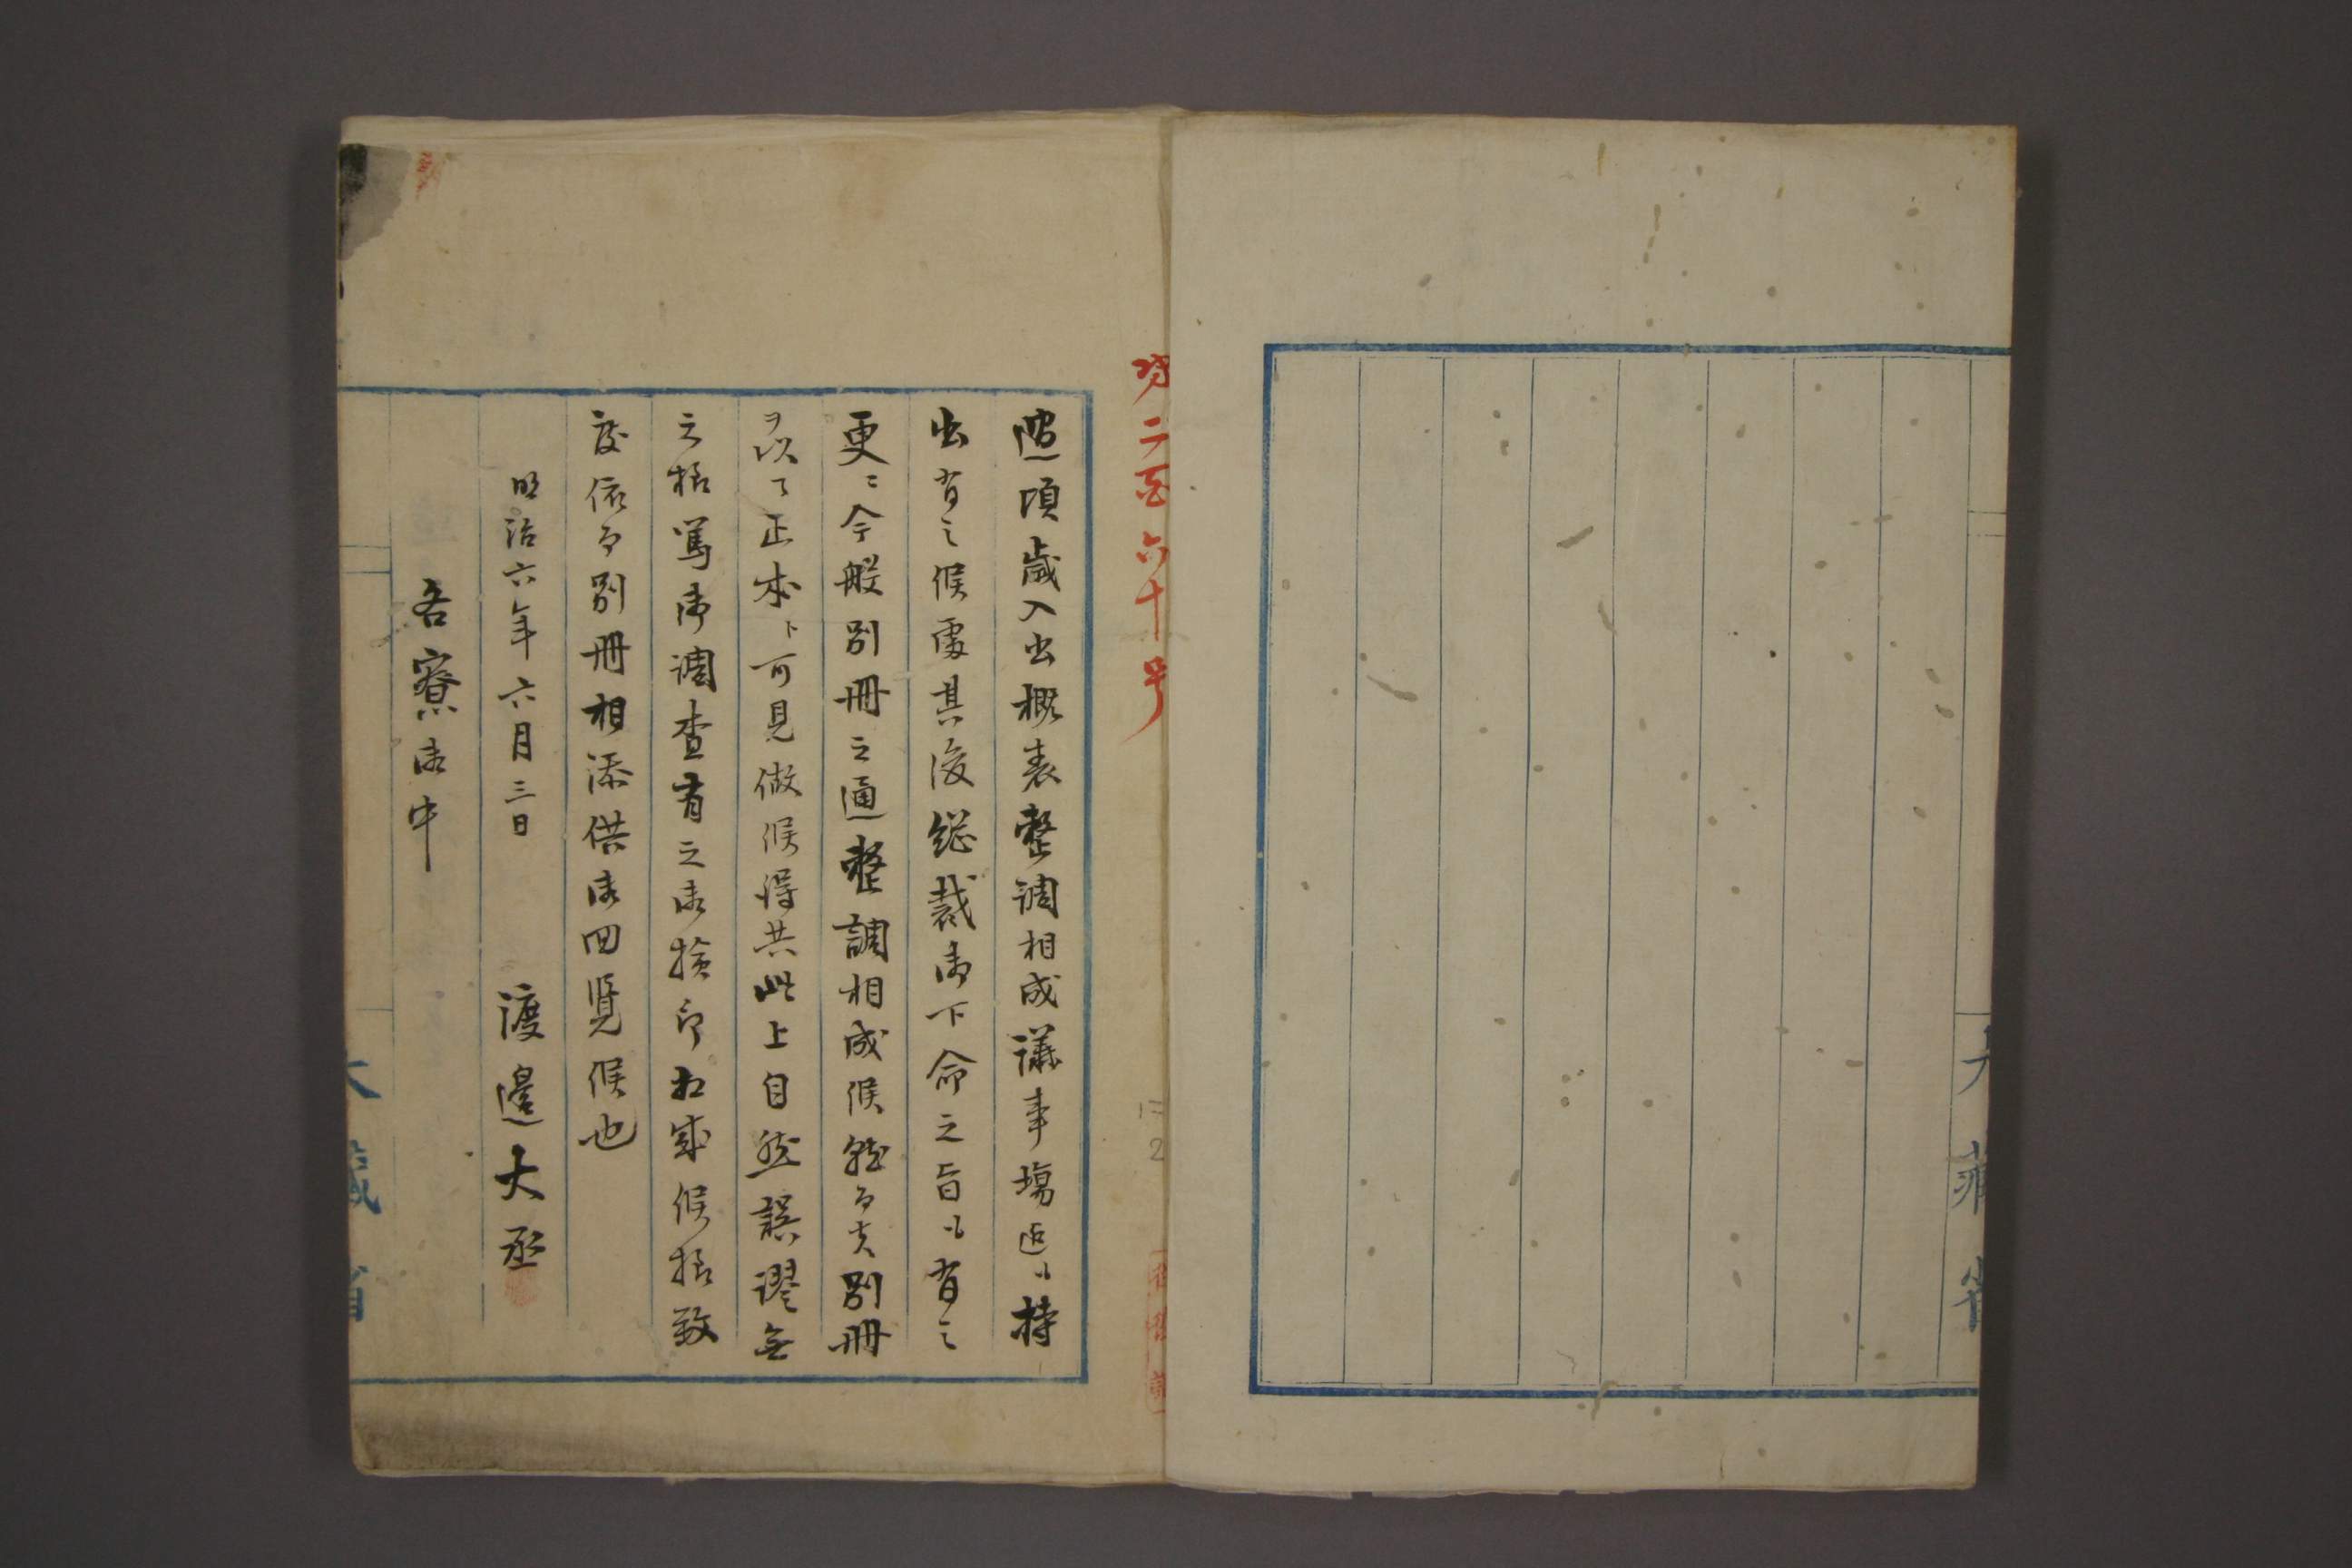 大蔵省
第二百六十号
過頃歳入出概表整調相成議事場迄も持
出有之候處其後総裁御下命之旨も有之
更ニ今般別冊之通整調相成候就而者別冊
ヲ以テ正本ト可見做候得共此上自然誤謬無
之様篤御調査有之御検印相成候様致
度依而別冊相添供御回覧候也
明治六年六月三日
渡邉大丞
各寮御中
大蔵省